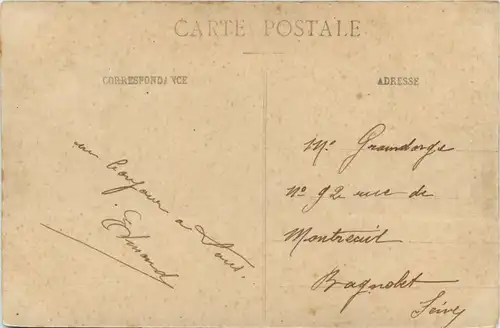 CARTE POSTALE
CORRESPONDANCE
ADRESSE
un bonjour a tous.
Edmond
Mr Graindorge
no 92 rue de
Montreuil
Bagnolet
Seine